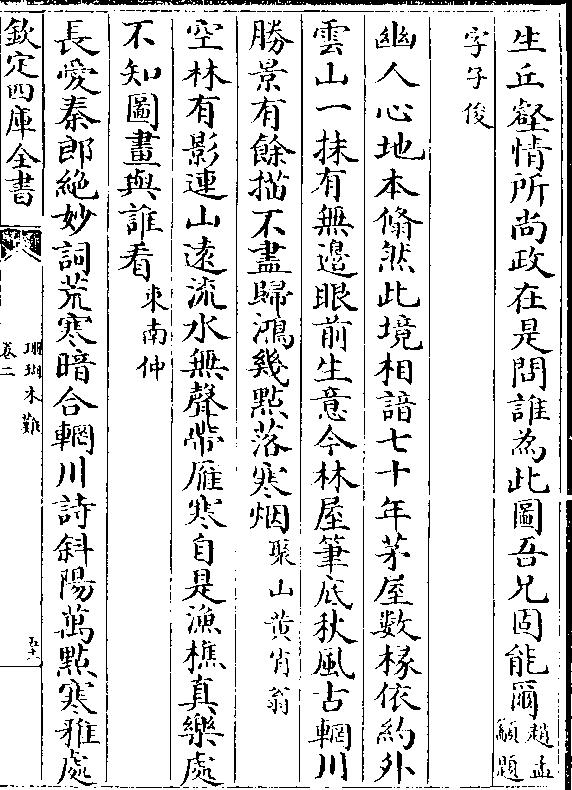 生丘壑情所尚政在是問誰為此圖吾兄固能爾趙孟籲題
字子俊
幽人心地本翛然此境相諳七十年茅屋數椽依約外
雲山一抹有無邊眼前生意今林屋筆底秋風古輞川
勝景有餘描不盡歸鴻幾點落寒烟聚山黄肖翁
空林有影連山遠流水無聲帶雁寒自是漁樵真樂處
不知圖畫與誰看束南仲
長愛秦郎絶妙詞荒寒暗合輞川詩斜陽萬點寒雅處
欽定四庫全書
珊瑚木難
卷二